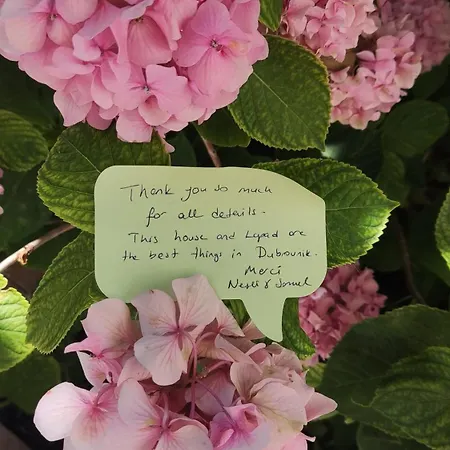 Thank you so much
for all details.
This house and Lapad are
the best things in Dubrovnik.
Merci